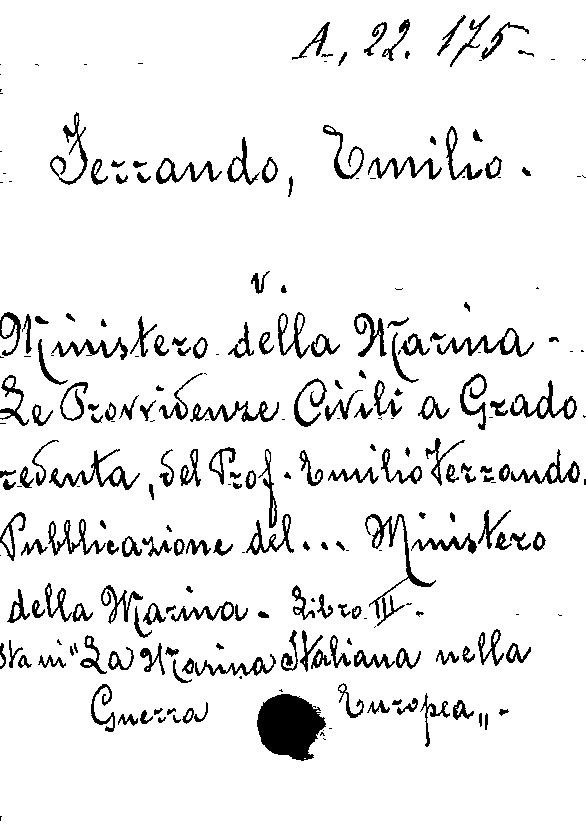 A, 22. 175-
Ferrando, Emilio.
v.
Ministero della Marina -
Le Provvidenze Civili a Grado
redenta, del Prof. Emilio Ferrando.
Pubblicazione del... Ministero
della Marina - Libro III -
sta in "La Marina Italiana nella
Guerra Europea„-